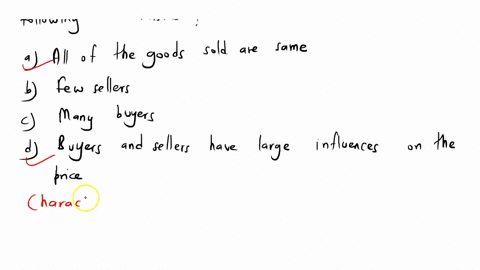 following
a) All of the goods sold are same
b) few sellers
c) Many buyers
d) Buyers and sellers have large influences on the
price
Charac